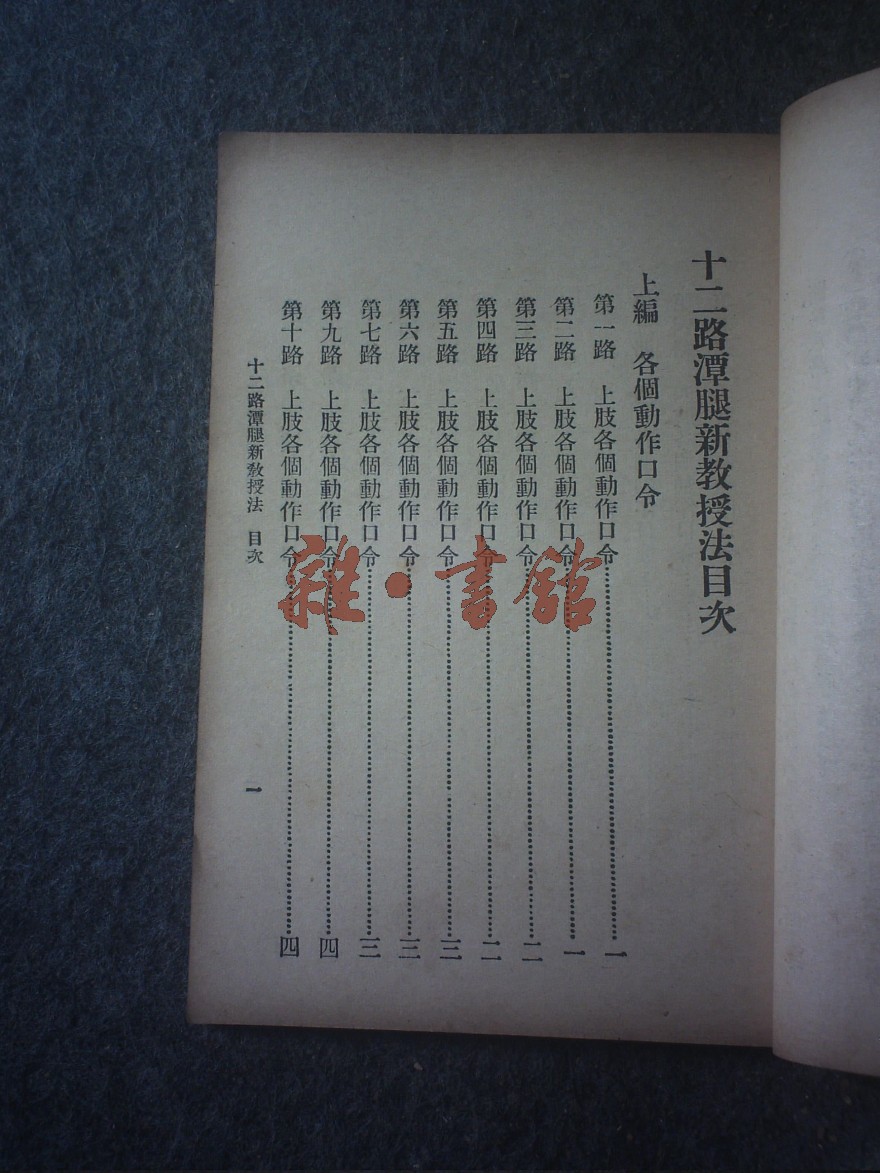 十二路潭腿新教授法目次
上編　各個動作口令
第一路　上肢各個動作口令……一
第二路　上肢各個動作口令……一
第三路　上肢各個動作口令……二
第四路　上肢各個動作口令……二
第五路　上肢各個動作口令……三
第六路　上肢各個動作口令……三
第七路　上肢各個動作口令……三
第九路　上肢各個動作口令……四
第十路　上肢各個動作口令……四
十二路潭腿新教授法　目次
一
雜·書館